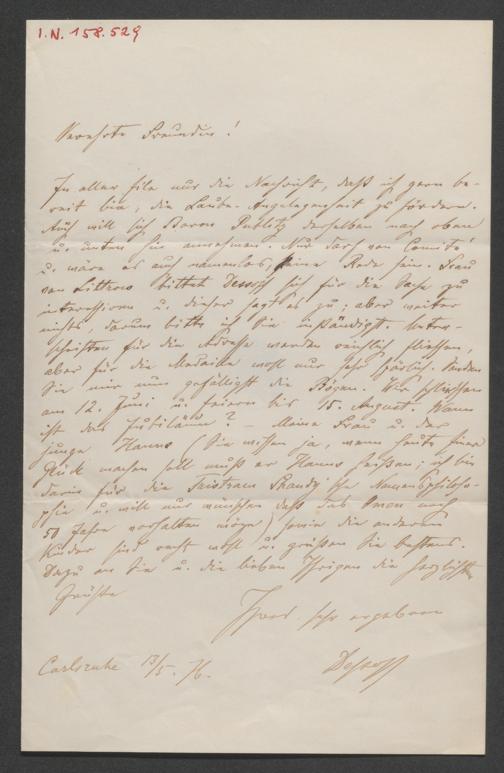 I.N. 158.529
Verehrte Freundin!
In aller Eile nur die Nachricht, daß ich gern be-
reit bin, die Laube-Angelegenheit zu fördern.
Auch will sich Baron Putlitz derselben nach oben
u. unten hin annehmen. Nur darf von Comité
u. wäre es auch namenlos, keine Rede sein. Frau
von Littrow bittet Dessoff sich für die Sache zu
interessiren u. dieser sagt es zu; aber weiter
nichts, darum bitte ich Sie inständigst. Unter-
schriften für die Adresse werden reichlich fließen,
aber für die Medaille wohl nur sehr spärlich. Senden
Sie mir nun gefälligst die Bögen. Wir schließen
am 12. Juni u. feiern bis 15. August. Wann
ist das Jubiläum? – Meine Frau u. der
junge Hanns (Sie wissen ja, wenn heute einer
Glück machen soll muß er Hanns heißen; ich bin
darin für die Tristram Shandy'sche Namensphiloso-
phie u. will nur wünschen daß das Omen noch
50 Jahre vorhalten möge) sowie die anderen
Kinder sind recht wohl u. grüßen Sie bestens.
Dazu an Sie u. die lieben Ihrigen die herzlichsten
Grüße
Ihres sehr ergebenen
Dessoff
Carlsruhe 13/5. 76.